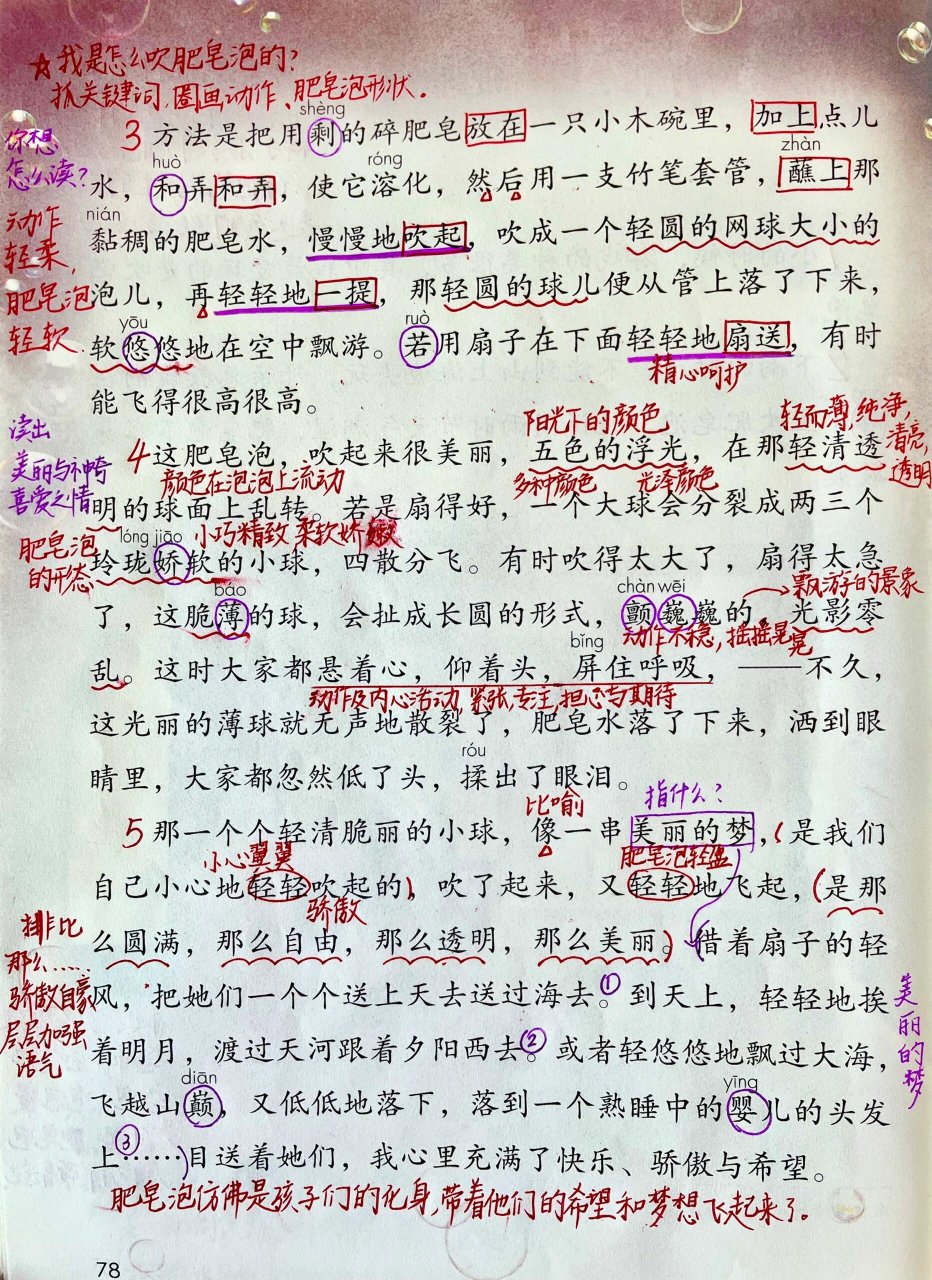 ★我是怎么吹肥皂泡的?
抓关键词,圈画动作、肥皂泡形状.
shèng
3方法是把用剩的碎肥皂放在一只小木碗里，加上点儿
你想
怎么读?
huò róng zhàn
水，和弄和弄，使它溶化，然后用一支竹笔套管，蘸上那
动作
轻柔,
肥皂泡
轻软
nián
黏稠的肥皂水，慢慢地吹起，吹成一个轻圆的网球大小的
泡儿，再轻轻地一提，那轻圆的球儿便从管上落了下来，
yōu ruò
软悠悠地在空中飘游。若用扇子在下面轻轻地扇送，有时
精心呵护
能飞得很高很高。
读出
美丽与神奇
喜爱之情
阳光下的颜色
轻而薄,纯净,
清亮,
透明
4这肥皂泡，吹起来很美丽，五色的浮光，在那轻清透
颜色在泡泡上流动
多种颜色 光泽颜色
明的球面上乱转。若是扇得好，一个大球会分裂成两三个
肥皂泡
的形态
lóng jiāo
小巧精致 柔软娇嫩
玲珑娇软的小球，四散分飞。有时吹得太大了，扇得太急
báo chàn wēi
飘游的景象
了，这脆薄的球，会扯成长圆的形式，颤巍巍的，光影零
动作不稳,摇摇晃晃
bǐng
乱。这时大家都悬着心，仰着头，屏住呼吸，——不久，
动作及内心活动,紧张,专注,担心与期待
这光丽的薄球就无声地散裂了，肥皂水落了下来，洒到眼
róu
睛里，大家都忽然低了头，揉出了眼泪。
比喻 指什么?
5那一个个轻清脆丽的小球，像一串美丽的梦，(是我们
小心翼翼 肥皂泡轻盈
自己小心地轻轻吹起的)，吹了起来，又轻轻地飞起，(是那
骄傲
排比
那么……
骄傲自豪
层层加强
语气
么圆满，那么自由，那么透明，那么美丽。)借着扇子的轻
风，把她们一个个送上天去送过海去。①到天上，轻轻地挨
美丽的梦
着明月，渡过天河跟着夕阳西去。②或者轻悠悠地飘过大海，
diān yīng
飞越山巅，又低低地落下，落到一个熟睡中的婴儿的头发
上③……)目送着她们，我心里充满了快乐、骄傲与希望。
肥皂泡仿佛是孩子们的化身,带着他们的希望和梦想飞起来了.
78